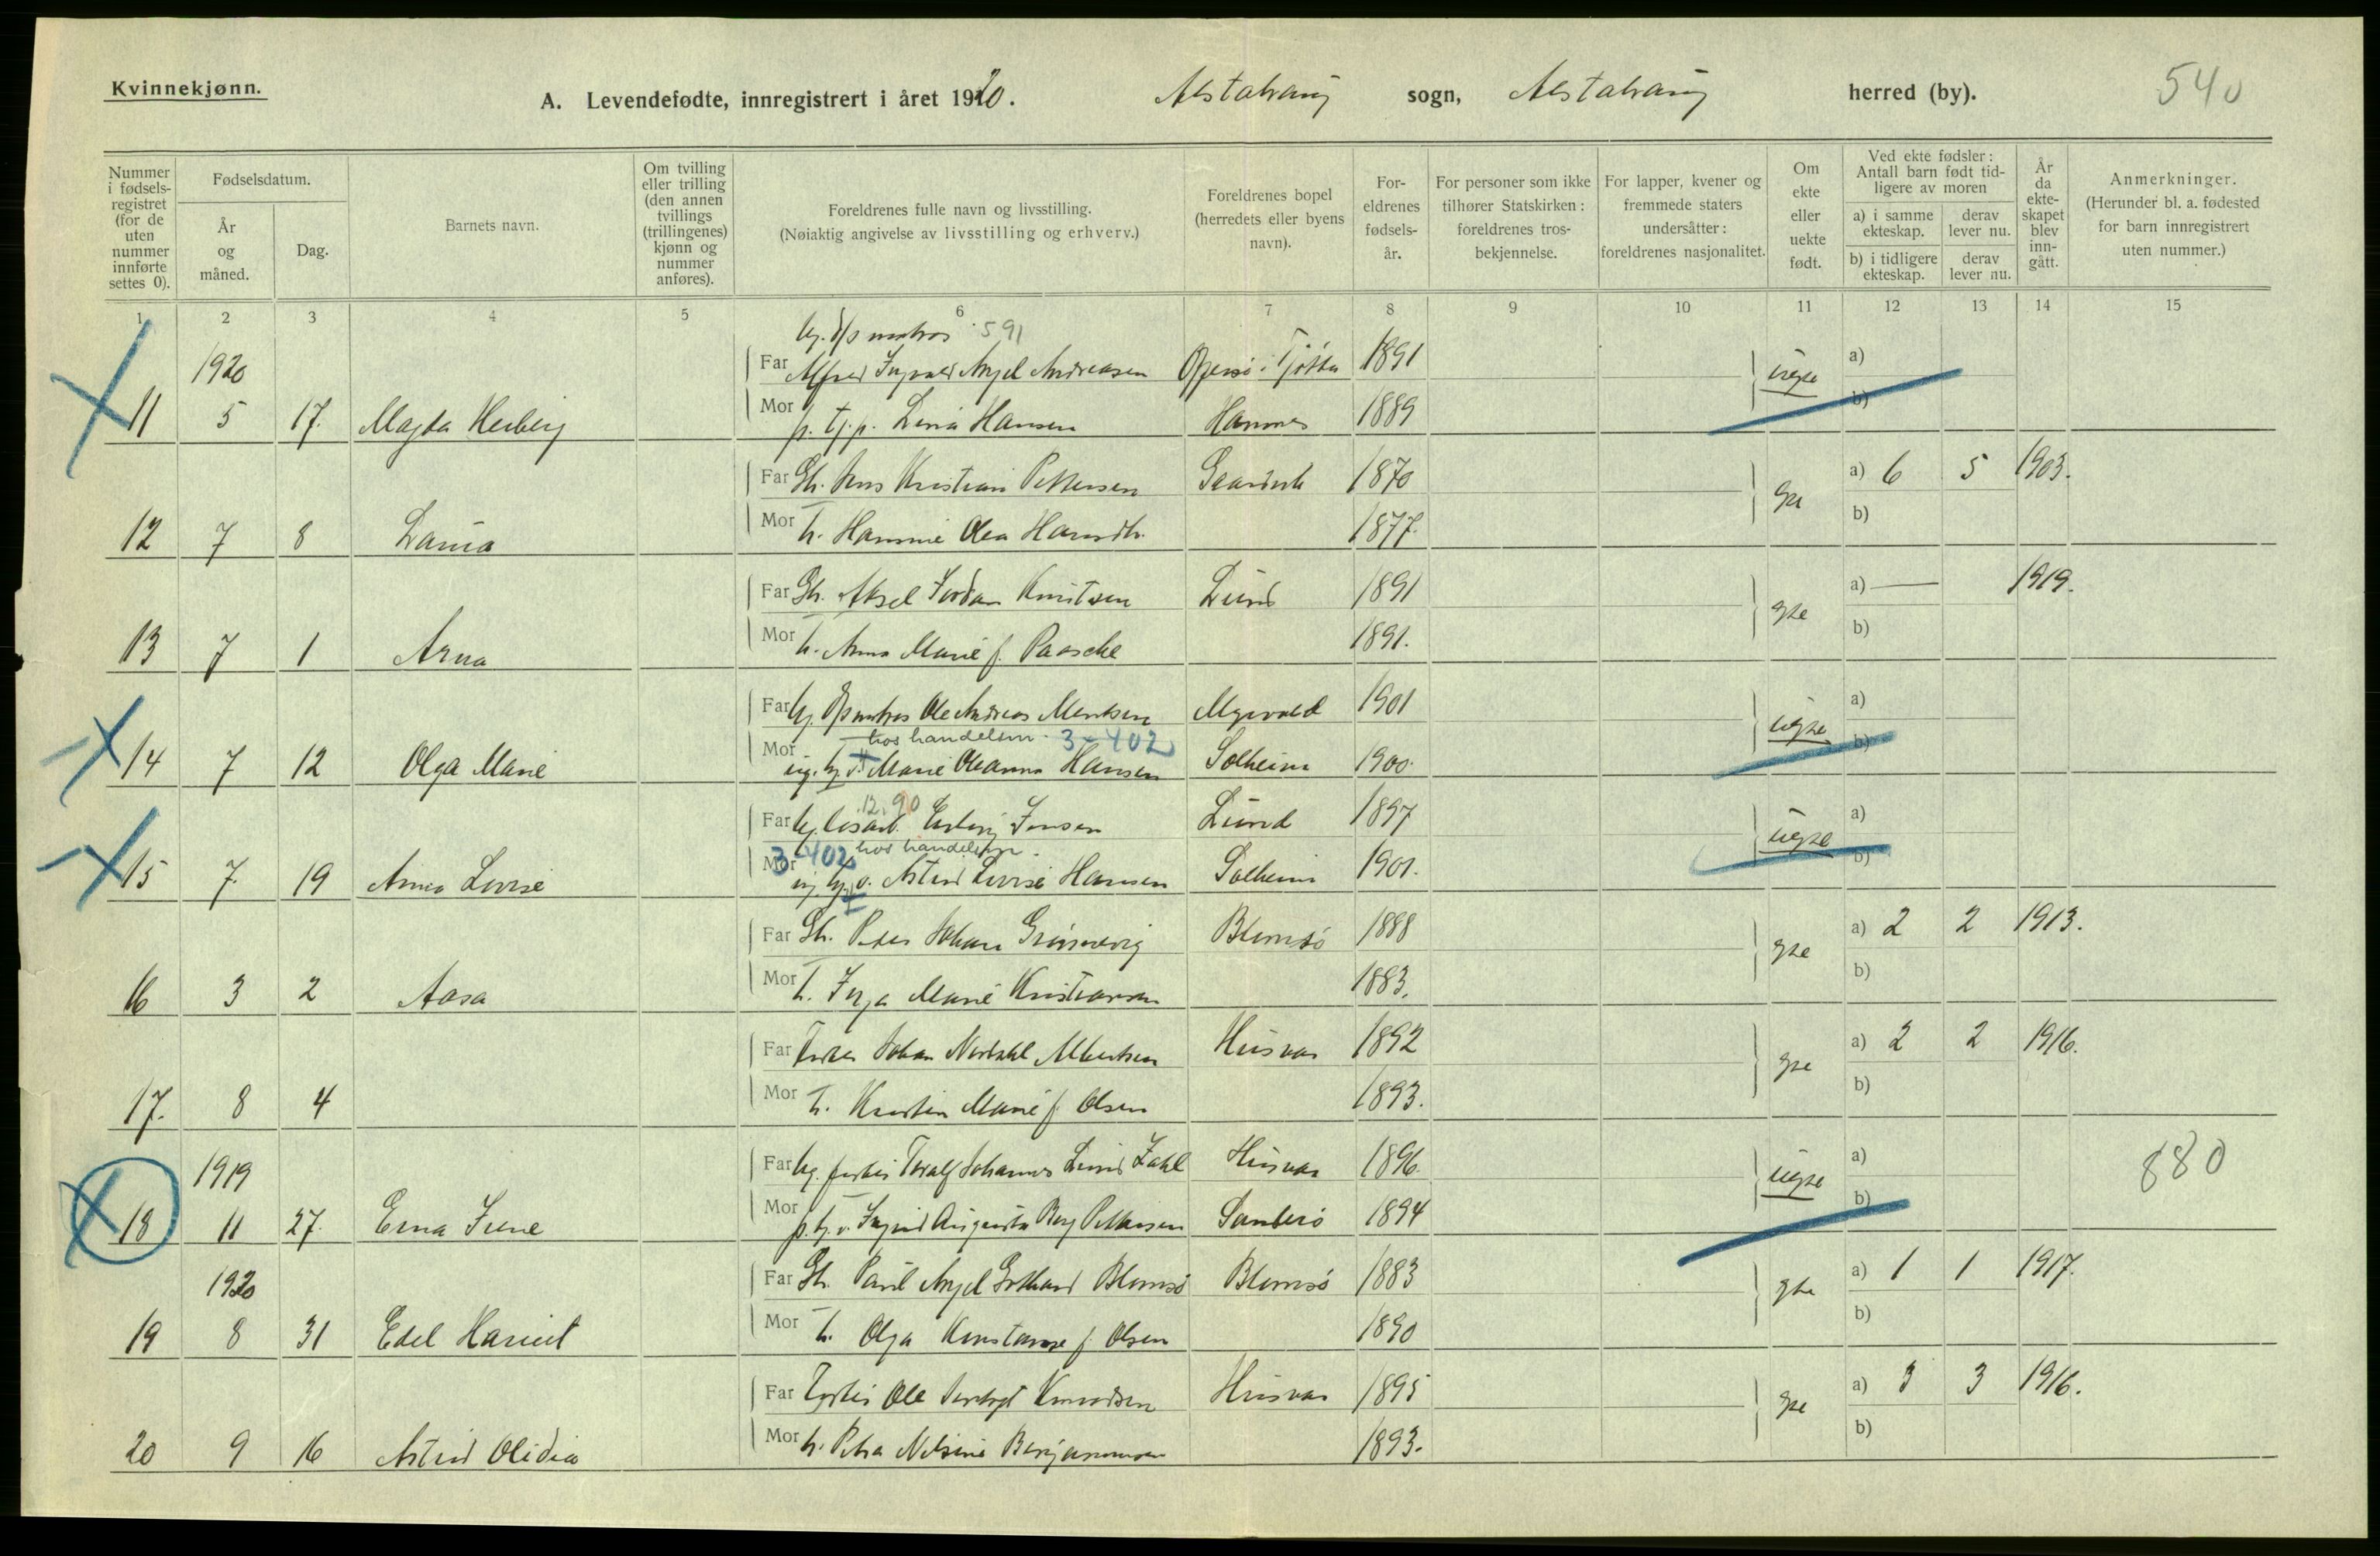 Kvinnekjønn.
A. Levendefødte, innregistrert i året 1920.
Alstahaug sogn, Alstahaug herred (by).
540
Nummer i fødsels-registret (for de uten nummer innførte settes 0).
Fødselsdatum.
År og måned.
Dag.
Barnets navn.
Om tvilling eller trilling (den annen tvillings (trillingenes) kjønn og nummer anføres).
Foreldrenes fulle navn og livsstilling.
(Nøiaktig angivelse av livsstilling og erhverv.)
Foreldrenes bopel (herredets eller byens navn).
For-eldrenes fødsels-år.
For personer som ikke tilhører Statskirken: foreldrenes tros-bekjennelse.
For lapper, kvener og fremmede staters undersåtter: foreldrenes nasjonalitet.
Om ekte eller uekte født.
Ved ekte fødsler: Antall barn født tid-ligere av moren
a) i samme ekteskap.
derav lever nu.
b) i tidligere ekteskap.
derav lever nu.
År da ekte-skapet blev inn-gått.
Anmerkninger.
(Herunder bl. a. fødested for barn innregistrert uten nummer.)
1 2 3 4 5 6 7 8 9 10 11 12 13 14 15
ug. d/s matros 591
1920 Far Alfred Ingvald Angel Andreasen Offersø i Tjøtta 1891 uegte a)
11 5 17. Magda Herberg Mor p. tj.p. Lina Hansen Hamnes 1889 b)
Far Gb. Jens Kristian Pettersen 1870 gte a) 6 5 1903.
12 7 8 Mor h. Hansine Olea Hansdtr. 1877. b)
Far Gb. Aksel Jordan Knutsen Lund 1891 gte a) — 1919.
13 7 1 Arna Mor h. Anna Marie f. Paasche 1891. b)
Far ug. d/s matros Ole Andreas Mentsen Myrvold 1901 uegte a)
hos handelsm. 3-402
14 7 12 Olga Marie Mor ug. tj. v. Marie Oleanna Hansen Solheim 1900. b)
12.90
Far ug. løsarb. Erling Jensen Lund 1897 uegte a)
3-402 hos handelsm.
15 7. 19 Anna Lovise Mor ug. tj. v. Astrid Lovise Hansen Solheim 1901. b)
Far Gb. Peder Johan Grønnevig Blomsø 1888 gte a) 2 2 1913.
16 3 2 Aasa Mor h. Inga Marie Kristiansen 1883. b)
Far Fisker Johan Nordahl Albertsen Husvær 1892 gte a) 2 2 1916.
17. 8 4 Mor h. Kristin Marie f. Olsen 1893. b)
1919 Far ug. fisker Toralf Johannes Lund Zahl Husvær 1896 uegte a) 880
18 11 27. Erna Irene Mor p. tj. v. Ingrid Augusta Berg Pettersen 1894 b)
1920 Far Gb. Paul Angel Gothard Blomsø Blomsø 1883 gte a) 1 1 1917.
19 8 31 Edel Harriet Mor h. Olga Konstanse f. Olsen 1890 b)
Far Fisker Ole Husvær 1895 gte a) 3 3 1916.
20 9 16 Astrid Olidia Mor h. Petra Nelsine Benjaminsen 1893. b)